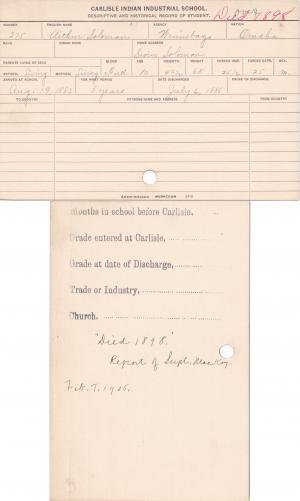 CARLISLE INDIAN INDUSTRIAL SCHOOL.
DESCRIPTIVE AND HISTORICAL RECORD OF STUDENT.
Died 1898
NUMBER ENGLISH NAME AGENCY NATION
275 Arthur Solomon Winnebago Omaha
BAND INDIAN NAME HOME ADDRESS
Solomon
PARENTS LIVING OR DEAD BLOOD AGE HEIGHT WEIGHT FORCED INSP. FORCED EXPR. SEX
FATHER, Living MOTHER, 10 M.
ARRIVED AT SCHOOL FOR WHAT PERIOD DATE DISCHARGED CAUSE OF DISCHARGE
Aug. 19, 1882 5 years July 6, 1888
TO COUNTRY PATRONS NAME AND ADDRESS FROM COUNTRY
Months in school before Carlisle,
Grade entered at Carlisle,
Grade at date of Discharge,
Trade or Industry,
Church.
"Died 1898."
Report of Supt. Mackey.
Feb. 7, 1906.